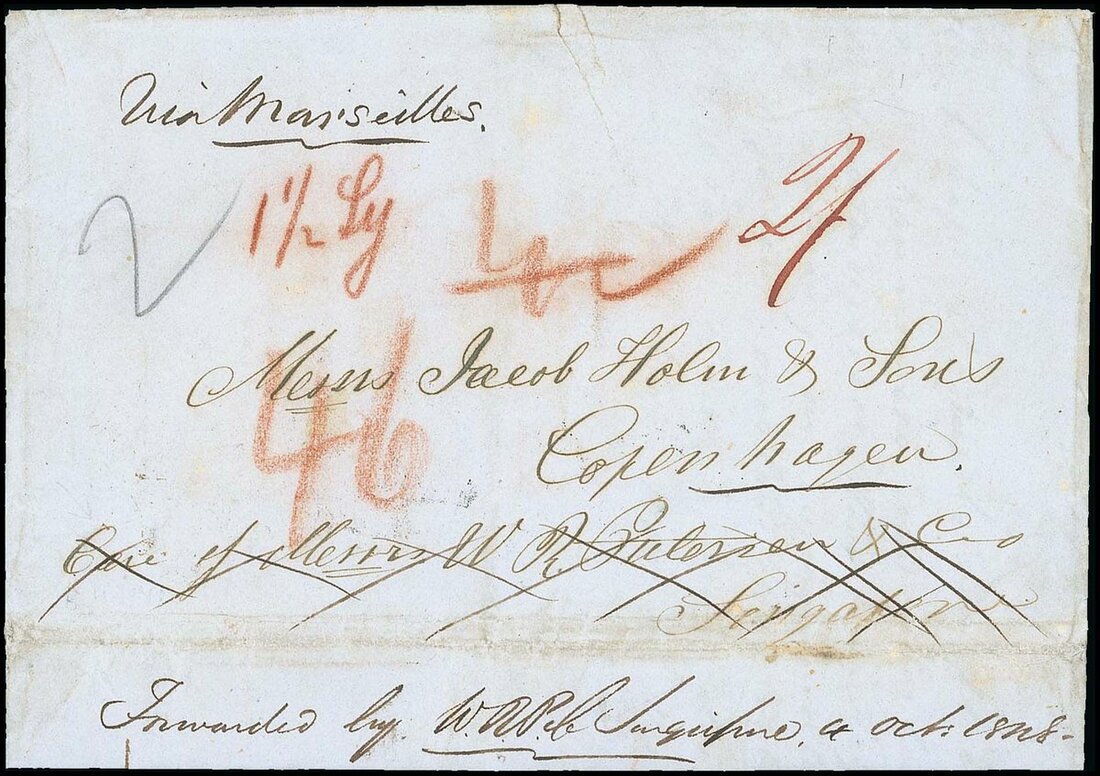 Via Marseilles.
2
1 1/2 Ly
2/
Messrs Jacob Holm & Sons
46
Copenhagen.
Care of Messrs W R Paterson & Co
Singapore
Forwarded by W.R.P.&C Singapore, 4 Oct: 1848-